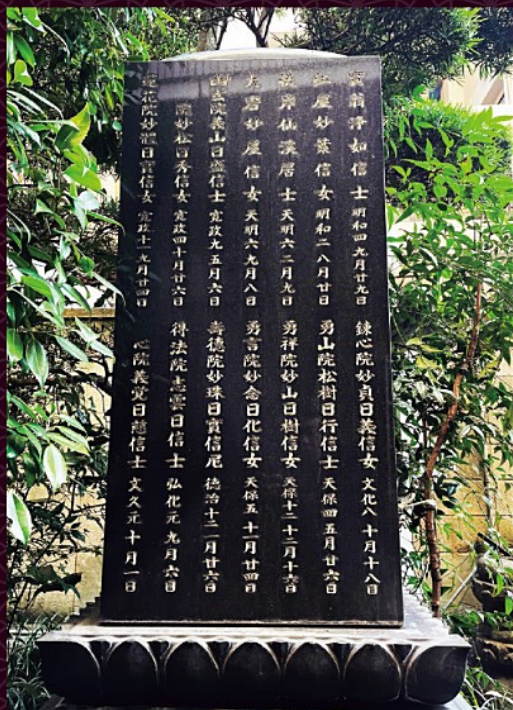 翁淨如信士 明和四 九月廿九日
屋妙蓮信女 明和二 八月廿日
岸仙溪居士 天明六 二月九日
妙屋信女 天明六 九月八日
義山日盛信士 寛政九 五月六日
妙松日秀信女 寛政四 十月廿六日
蓮花院妙體日寳信女 寛政十一 九月廿四日
錬心院妙貞日義信女 文化八 十月十八日
勇山院松樹日行信士 天保四 五月廿六日
勇祥院妙山日樹信女 天保十二 十二月十六日
勇言院妙念日化信女 天保五 十一月廿四日
壽德院妙珠日寳信尼 德治十二 一月廿六日
得法院志雲日信士 弘化元 九月六日
心院義寛日慈信士 文久元 十月一日